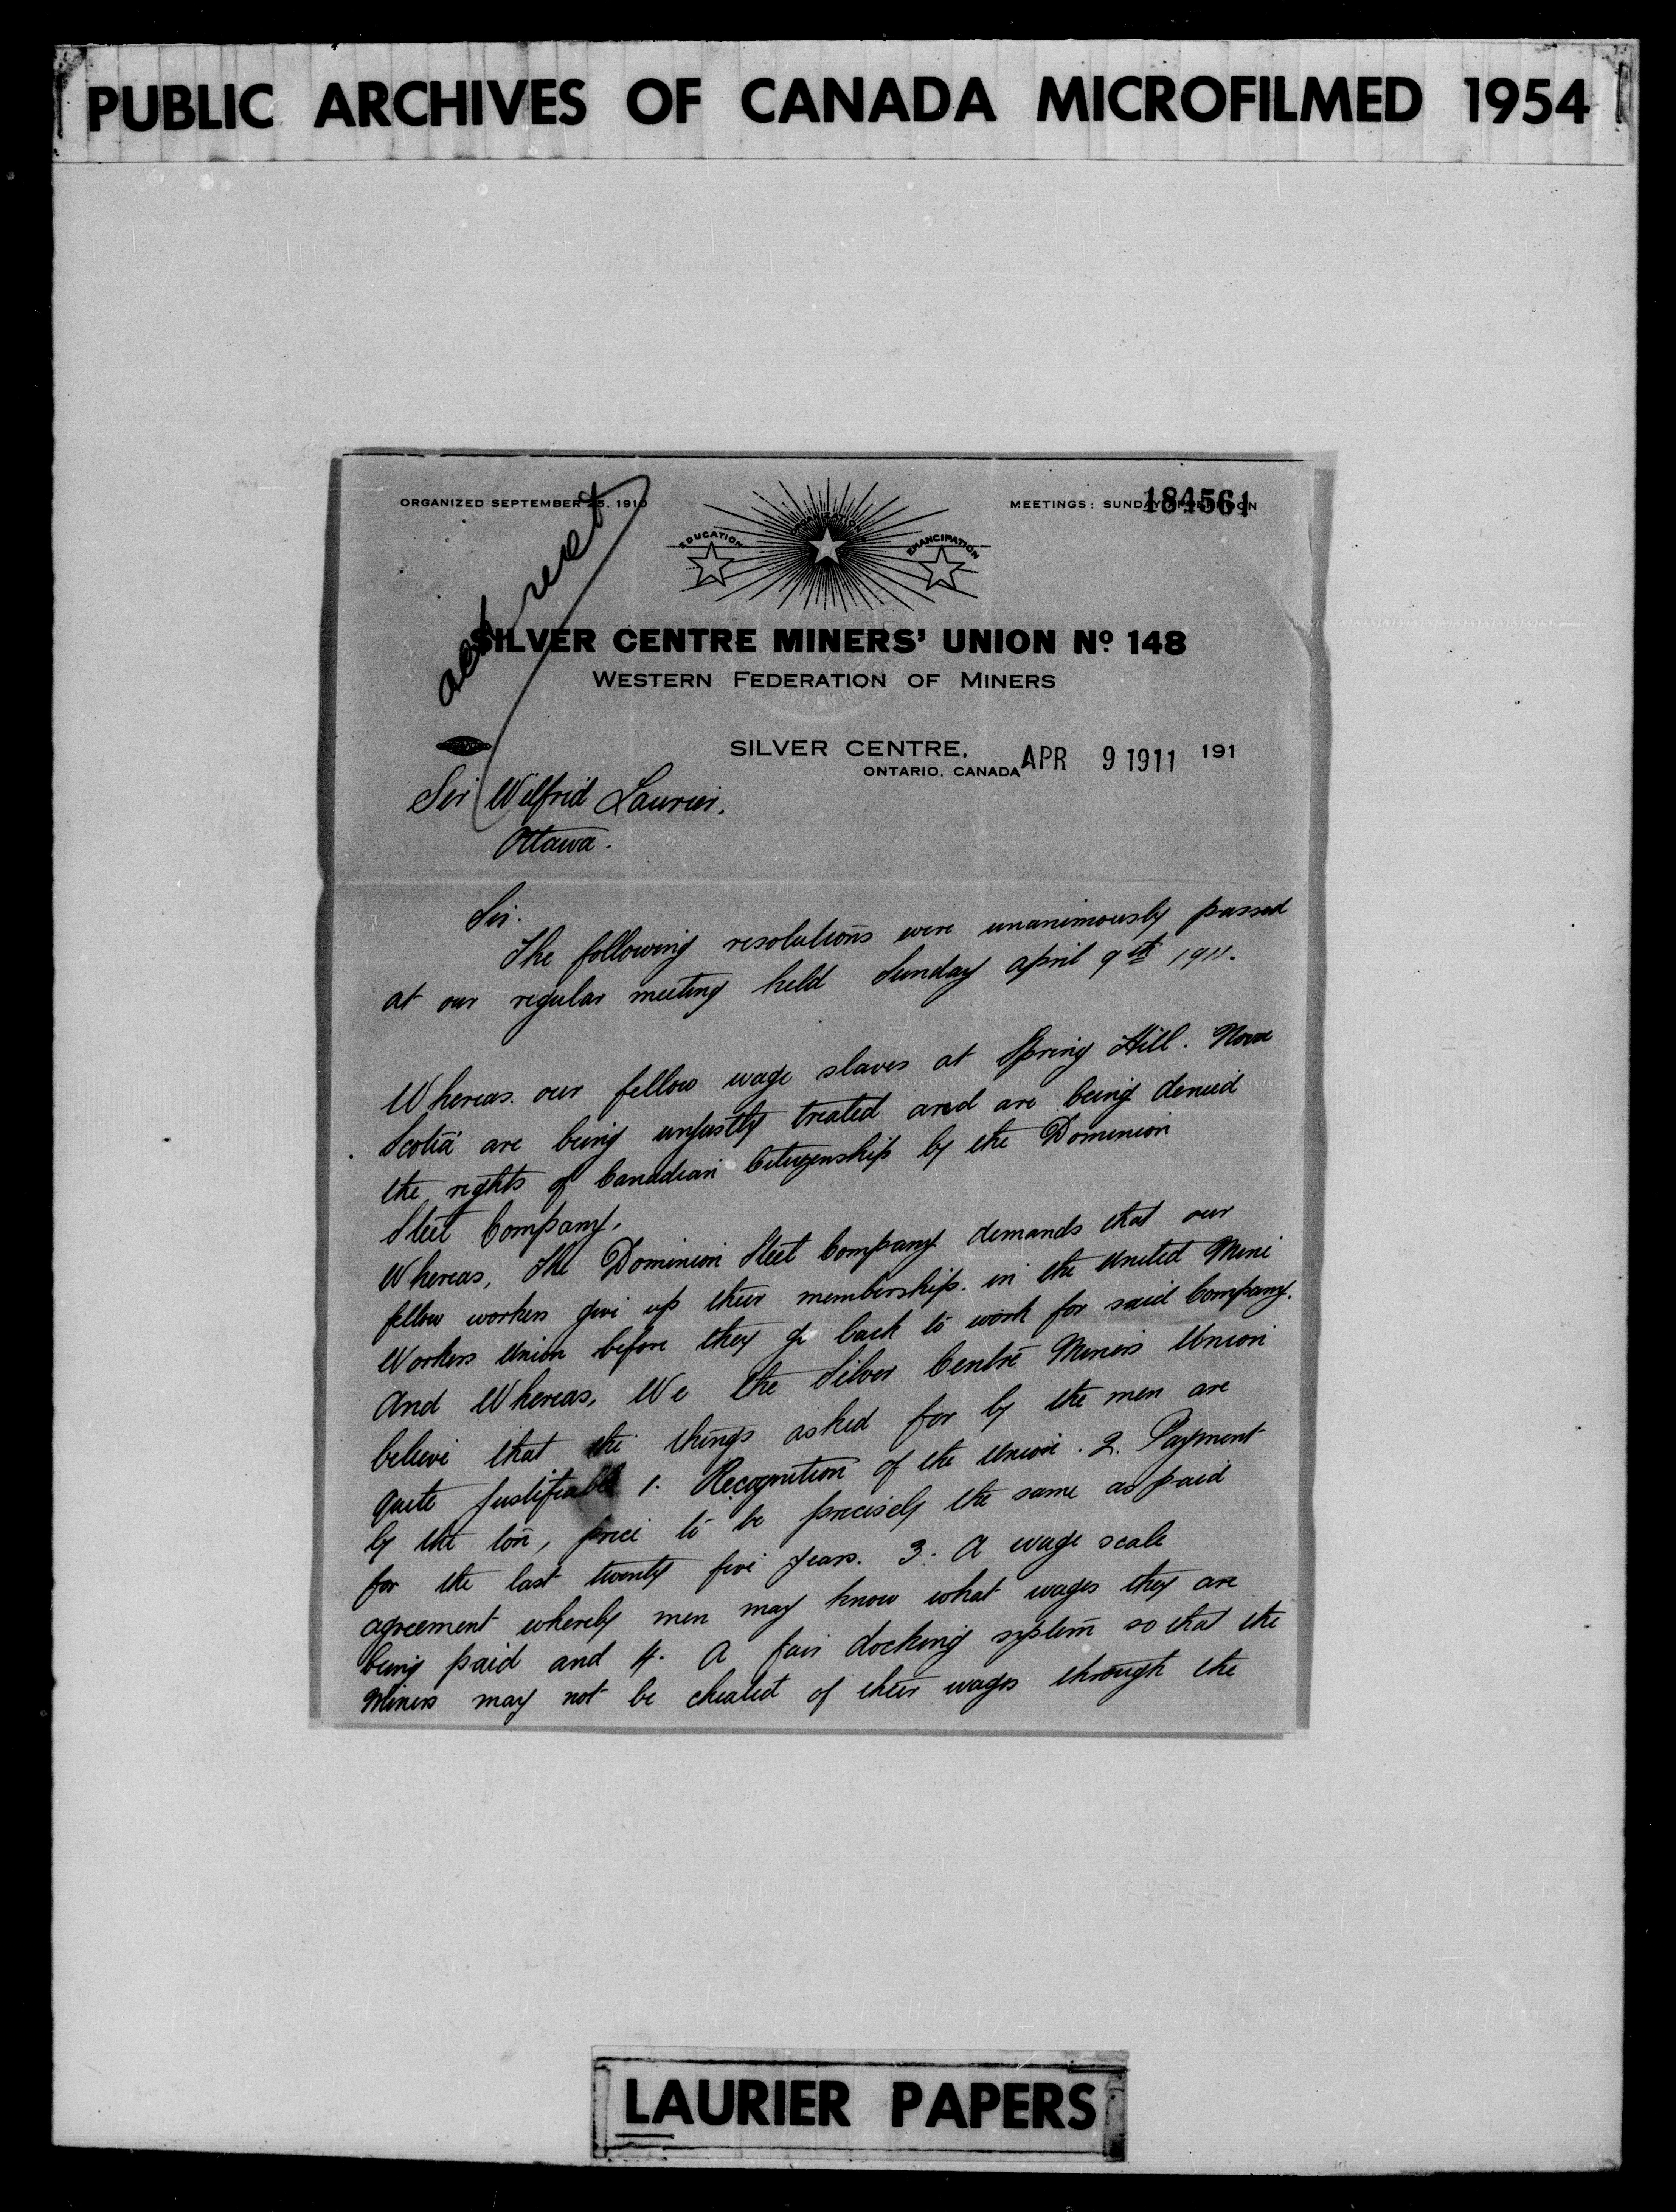 PUBLIC ARCHIVES OF CANADA MICROFILMED 1954
ORGANIZED SEPTEMBER 25, 1910
MEETINGS: SUNDAY AFTERNOON
184561
EDUCATION
ORGANIZATION
EMANCIPATION
SILVER CENTRE MINERS' UNION No. 148
WESTERN FEDERATION OF MINERS
SILVER CENTRE,
ONTARIO, CANADA APR 9 1911 191
Sir Wilfrid Laurier,
Ottawa.
Sir.
The following resolutions were unanimously passed
at our regular meeting held Sunday april 9th 1911.
Whereas. our fellow wage slaves at Spring Hill. Nova
Scotia are being unjustly treated and are being denied
the rights of Canadian Citizenship by the Dominion
Steel Company,
Whereas, The Dominion Steel Company demands that our
fellow workers give up their membership. in the United Mine
Workers Union before they go back to work for said Company.
And Whereas, We the Silver Centre Miners Union
believe that the things asked for by the men are
quite justifiable 1. Recognition of the Union. 2. Payment
by the ton, price to be precisely the same as paid
for the last twenty five years. 3. A wage scale
agreement whereby men may know what wages they are
being paid and 4. A fair docking system so that the
Miners may not be cheated of their wages through the
LAURIER PAPERS